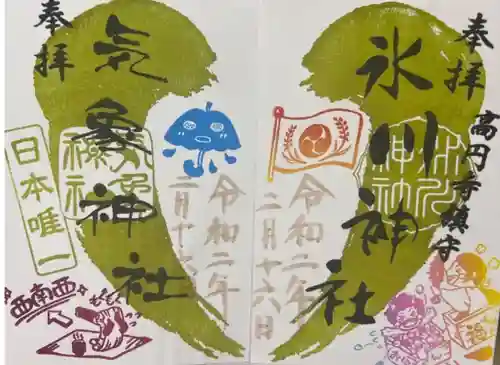 奉拝
高円寺鎮守
氷川神社
氷川神社
令和二年
二月十六日
奉拝
気象神社
気象神社
日本唯一
令和二年
二月十六日
西南西
福